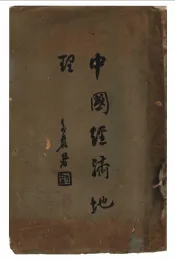 中國經濟地
理